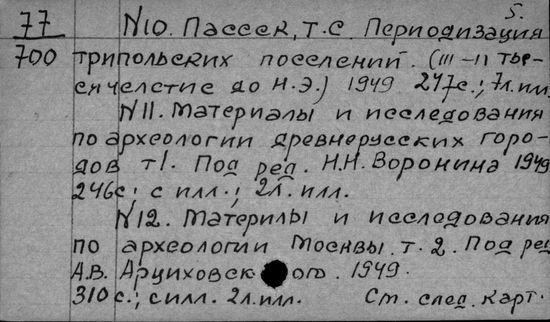 5.
77 N10. Пассек, Т.С. Периодизация
700 трипольских поселений. (III–II тыс-
сячелетие до н.э.) 1949 247с.; 7л.илл.
N11. Материалы и исследования
по археологии древнерусских горо-
дов т1. Под ред. Н.Н. Воронина 1949
246с; с илл.; 2л. илл.
N12. Материлы и исследования
по археологии Москвы. т. 2. Под ред
А.В. Арциховского. 1949.
310с.; с илл. 2л.илл. См. след. карт.